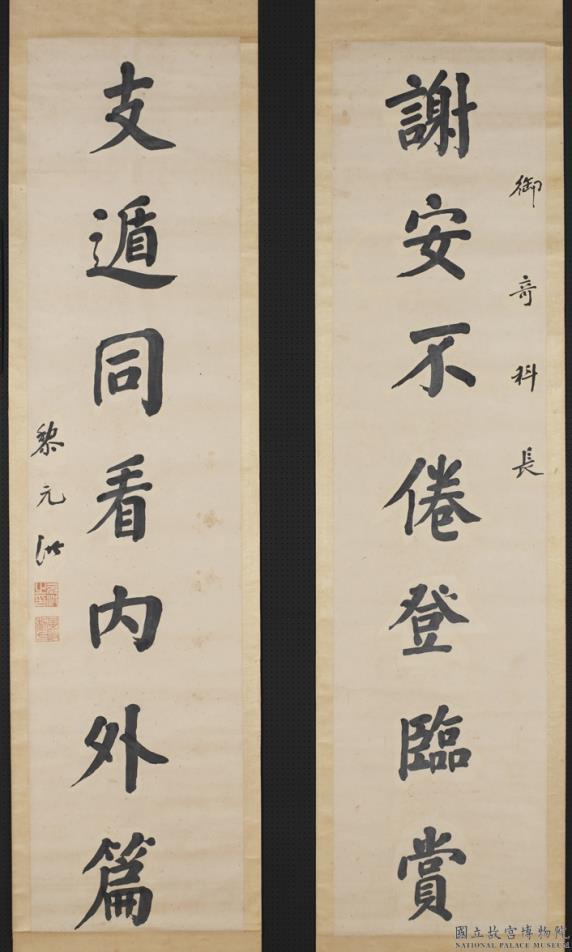 御奇科長
謝安不倦登臨賞
支遁同看內外篇
黎元洪
國立故宮博物院
NATIONAL PALACE MUSEUM